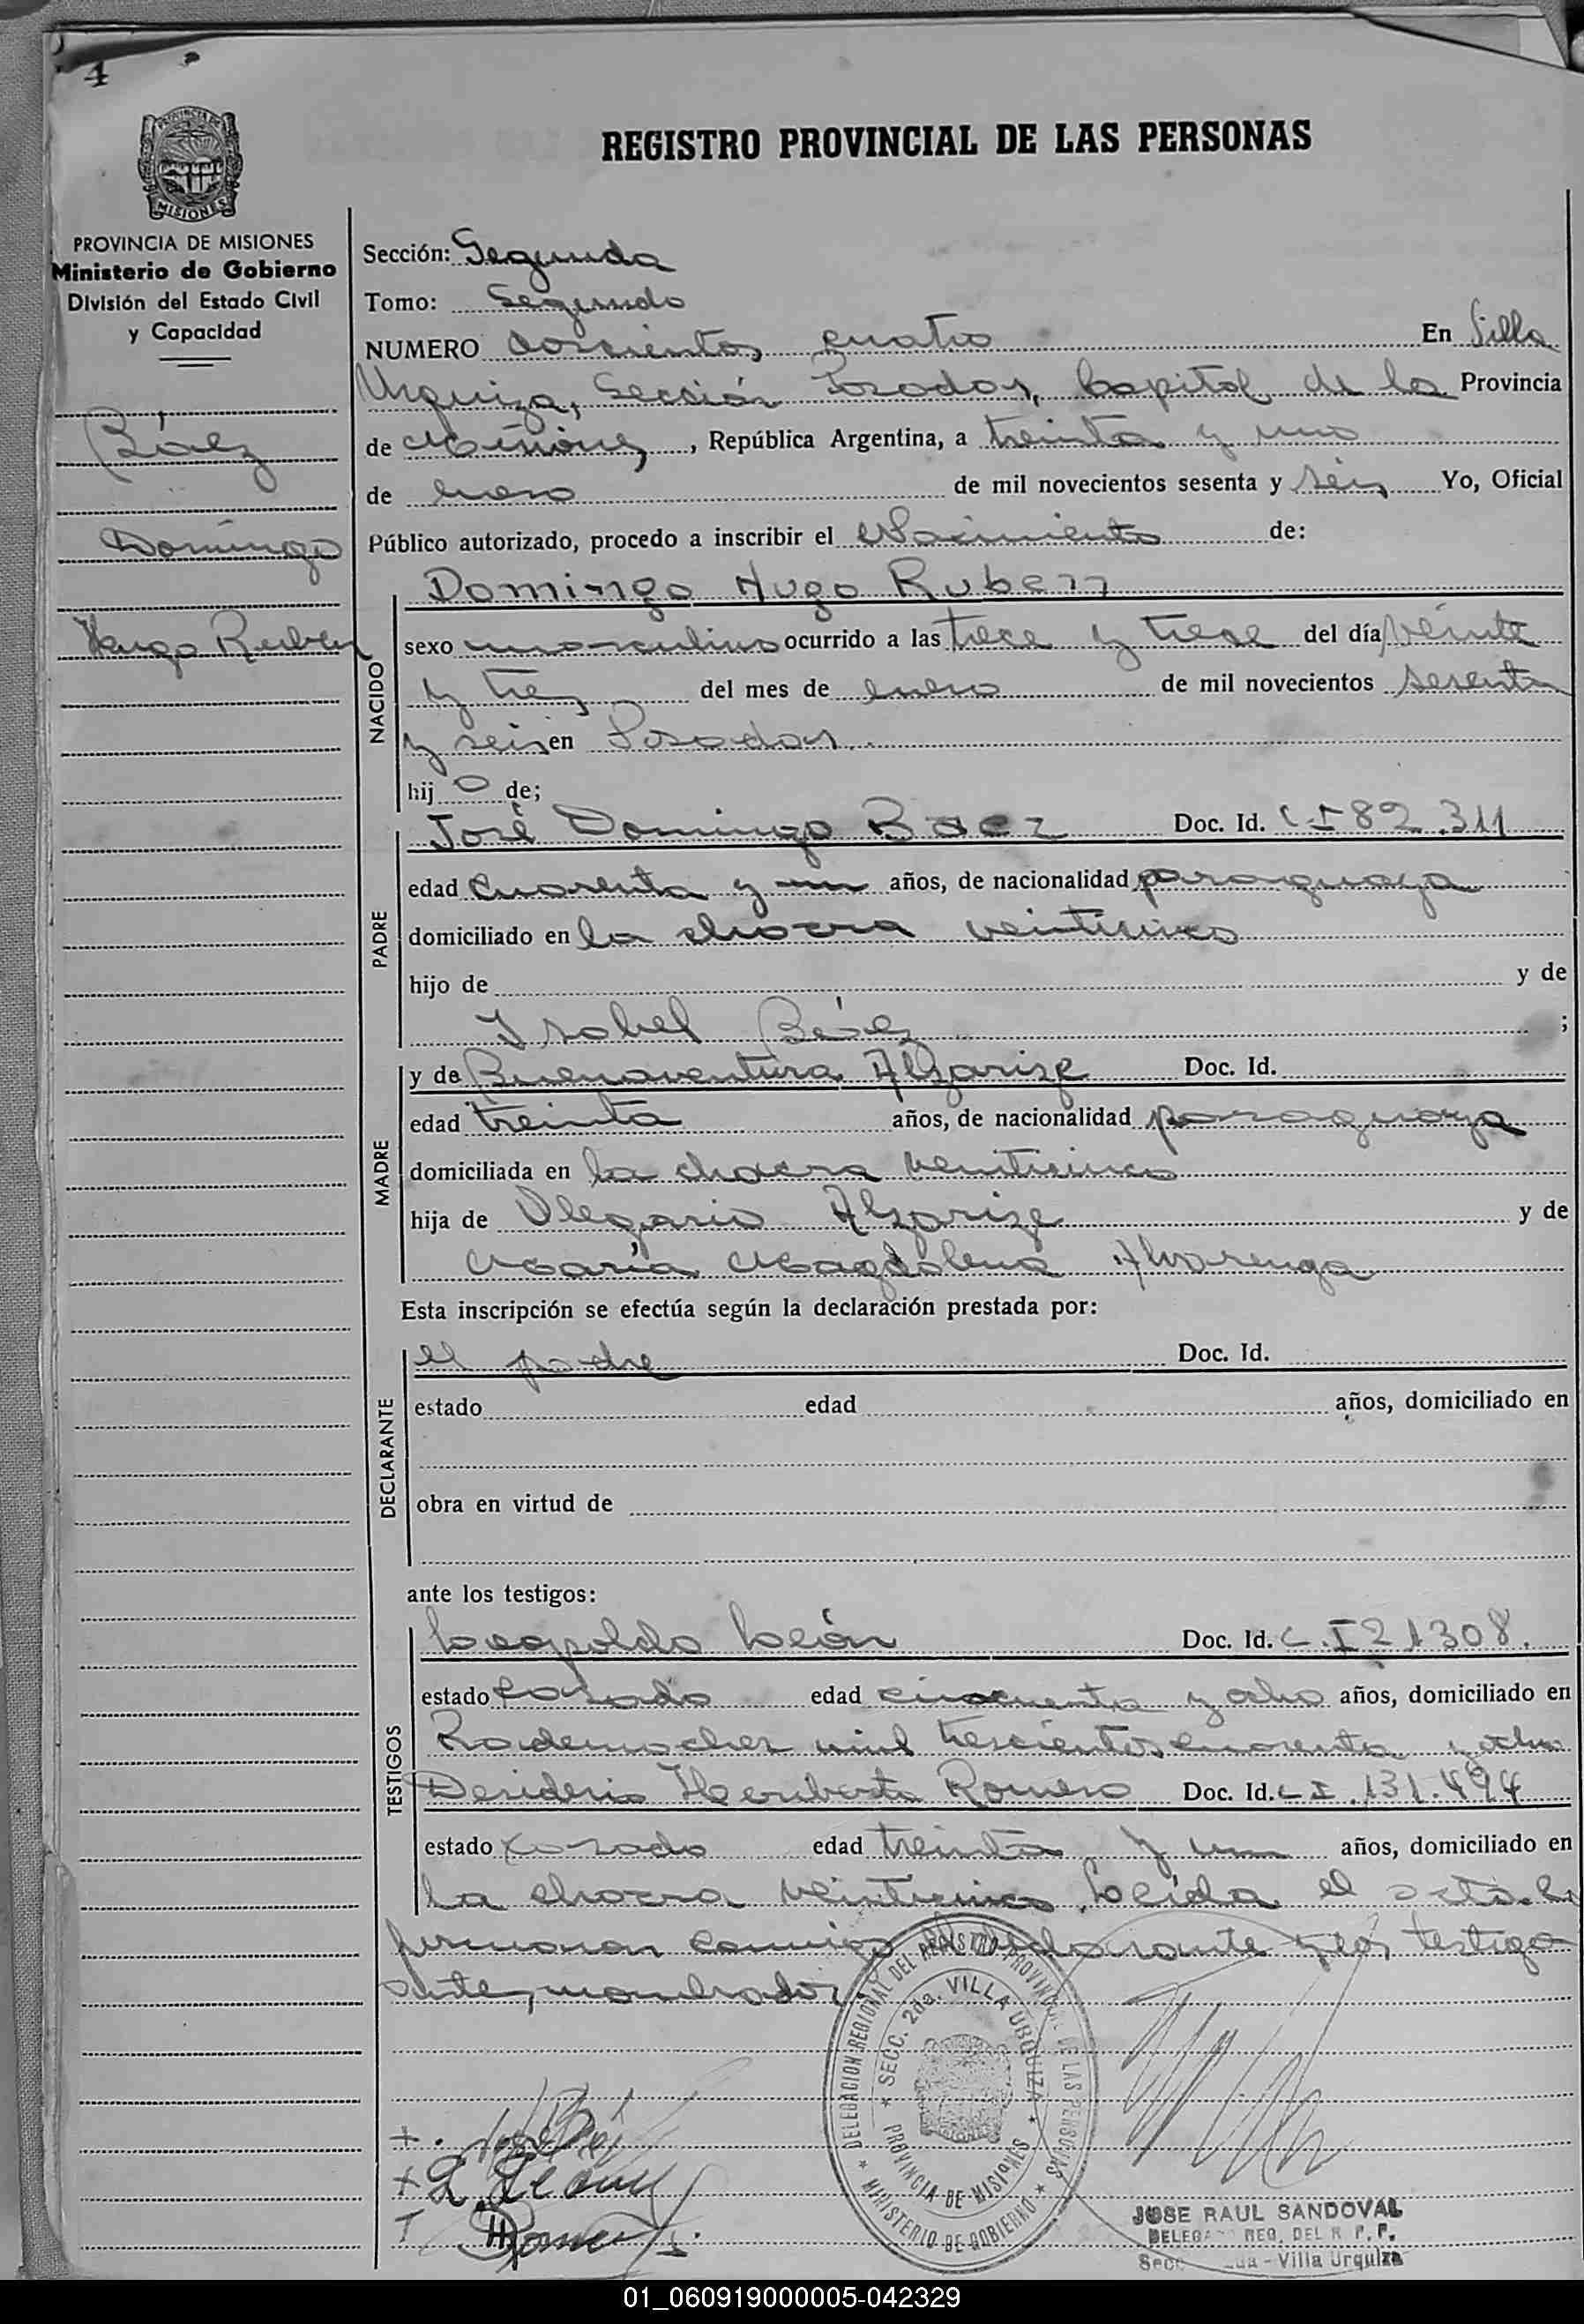 4
PROVINCIA DE
MISIONES
REGISTRO PROVINCIAL DE LAS PERSONAS
PROVINCIA DE MISIONES
Ministerio de Gobierno
División del Estado Civil
y Capacidad
Báez
Domingo
Hugo Ruben
Sección: Segunda
Tomo: Segundo
NUMERO doscientos cuatro En Villa
Urquiza, Sección Posadas, Capital de la Provincia
de Misiones, República Argentina, a treinta y uno
de enero de mil novecientos sesenta y seis Yo, Oficial
Público autorizado, procedo a inscribir el Nacimiento de:
NACIDO
Domingo Hugo Ruben
sexo masculino ocurrido a las trece y trece del día veinte
y tres del mes de enero de mil novecientos sesenta
y seis en Posadas.
hij o de;
PADRE
José Domingo Báez Doc. Id. C.I 82.311
edad cuarenta y un años, de nacionalidad paraguaya
domiciliado en la chacra veinticinco
hijo de y de
Isabel Báez ;
MADRE
y de Buenaventura Doc. Id.
edad treinta años, de nacionalidad paraguaya
domiciliada en la chacra veinticinco
hija de Olegario y de
María Magdalena Alvarenga
Esta inscripción se efectúa según la declaración prestada por:
DECLARANTE
el padre Doc. Id.
estado edad años, domiciliado en
obra en virtud de
ante los testigos:
TESTIGOS
Leopoldo León Doc. Id. C.I 21308.
estado casado edad cincuenta y ocho años, domiciliado en
Rademacher mil trescientos cuarenta y ocho
Desiderio Heriberto Romero Doc. Id. C I .131.494
estado casado edad treinta y un años, domiciliado en
la chacra veinticinco. Leída el acta la
firmaron conmigo el declarante y los testigo
antes nombrados.
DELEGACION REGIONAL DEL REGISTRO PROVINCIAL DE LAS PERSONAS
MINISTERIO DE GOBIERNO
SECC. 2da. VILLA URQUIZA
PROVINCIA DE MISIONES
JOSE RAUL SANDOVAL
REG. DEL R. P. P.
Villa Urquiza
01_060919000005-042329